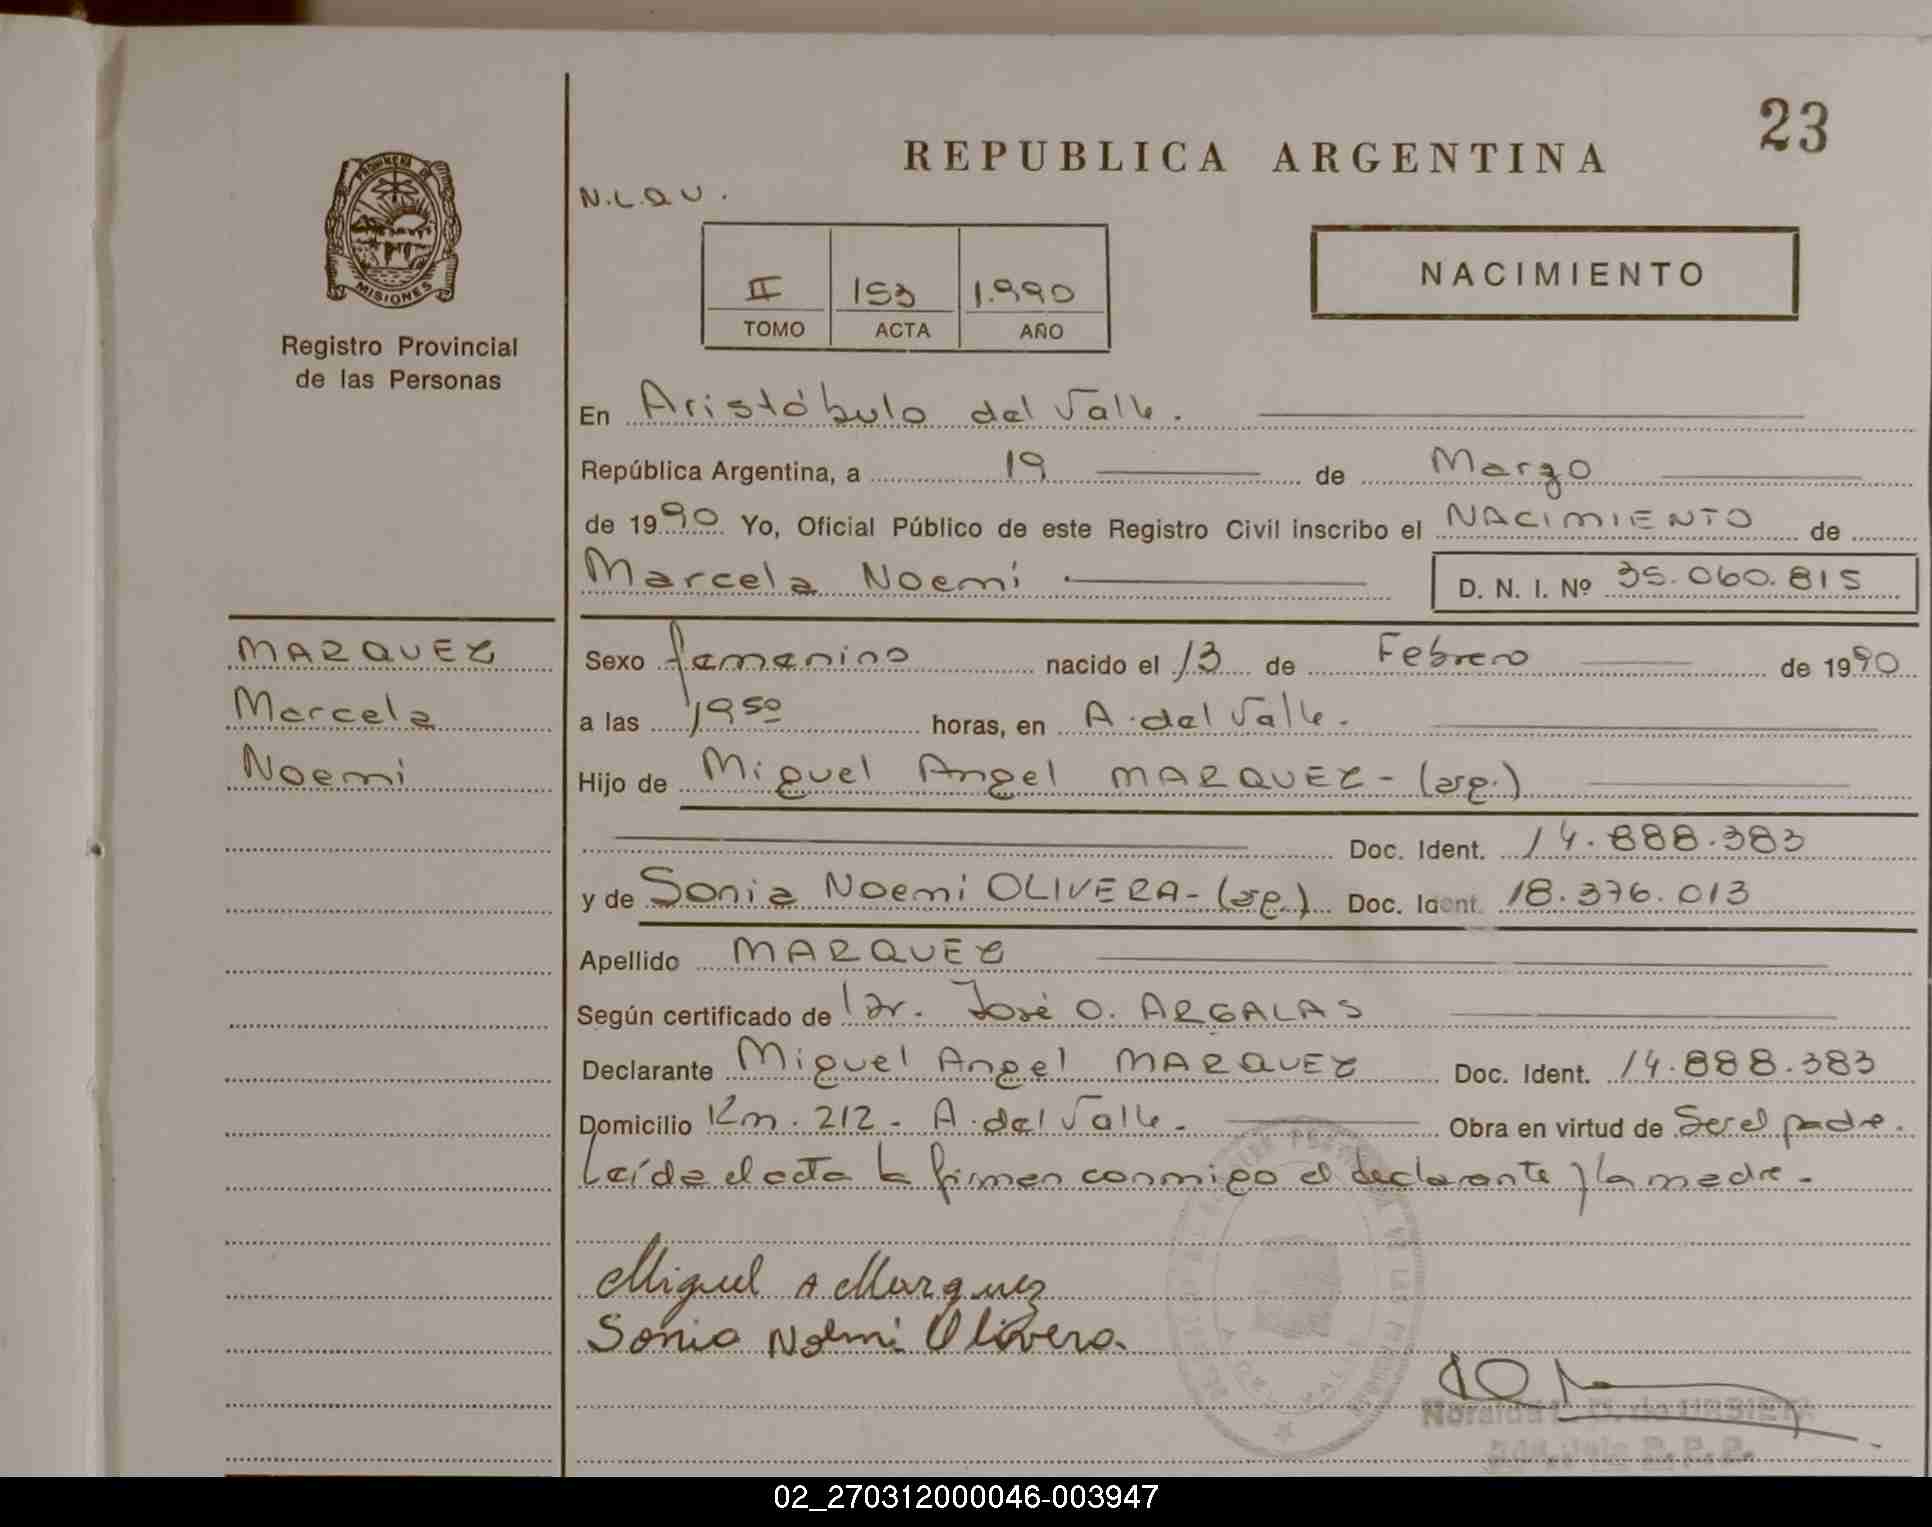 23
REPUBLICA ARGENTINA
N.L.Q.U.
PROVINCIA DE
MISIONES
Registro Provincial
de las Personas
II 153 1.990
TOMO ACTA AÑO
NACIMIENTO
En Aristóbulo del Valle.
República Argentina, a 19 de Marzo
de 1990 Yo, Oficial Público de este Registro Civil inscribo el NACIMIENTO de
Marcela Noemí D. N. I. Nº 35.060.815
MARQUEZ
Marcela
Noemi
Sexo femenino nacido el 13 de Febrero de 1990
a las 19 50 horas, en A. del Valle.
Hijo de Miguel Angel MARQUEZ - (arg.)
Doc. Ident. 14.888.383
y de Sonia Noemí OLIVERA - (arg.) Doc. Ident. 18.376.013
Apellido MARQUEZ
Según certificado de Dr. José O. ARGALAS
Declarante Miguel Angel MARQUEZ Doc. Ident. 14.888.383
Domicilio Km. 212 - A. del Valle. Obra en virtud de Ser el padre.
Leída el acta la firman conmigo el declarante y la madre.
Miguel A Marquez
Sonia Noemi Olivera.
de URBIETA
02_270312000046-003947